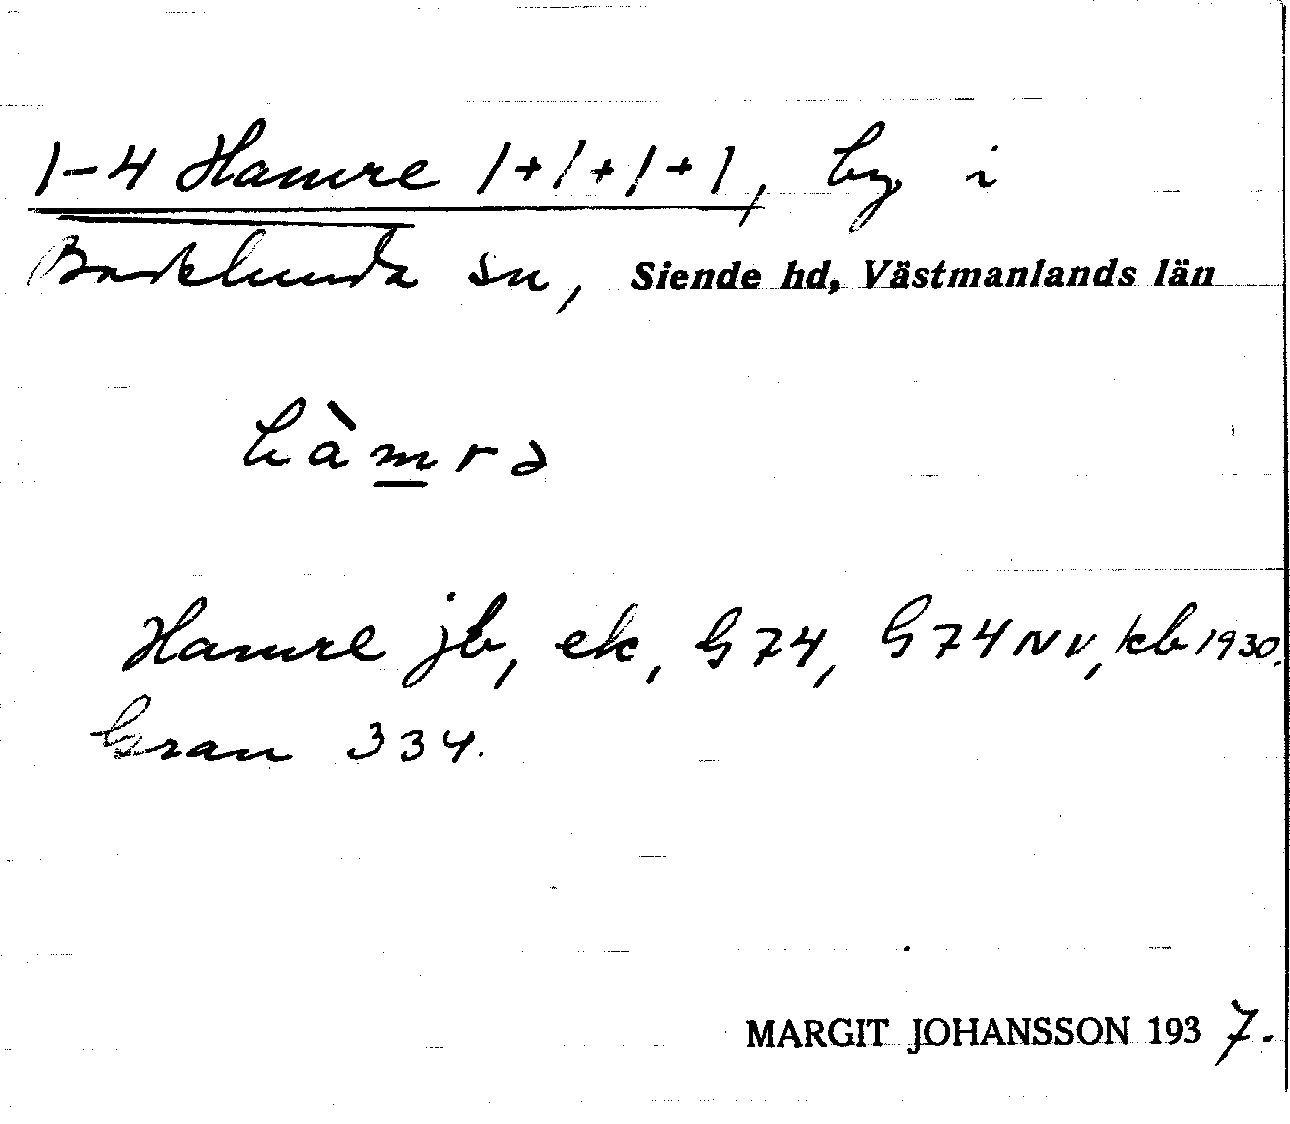 1-4 Hamre 1+1+1+1, by i
Badelunda sn, Siende hd, Västmanlands län
hàmrə
Hamre jb, ek, G 74, G 74 NV, kb 1930.
Gran 334.
MARGIT JOHANSSON 1937.